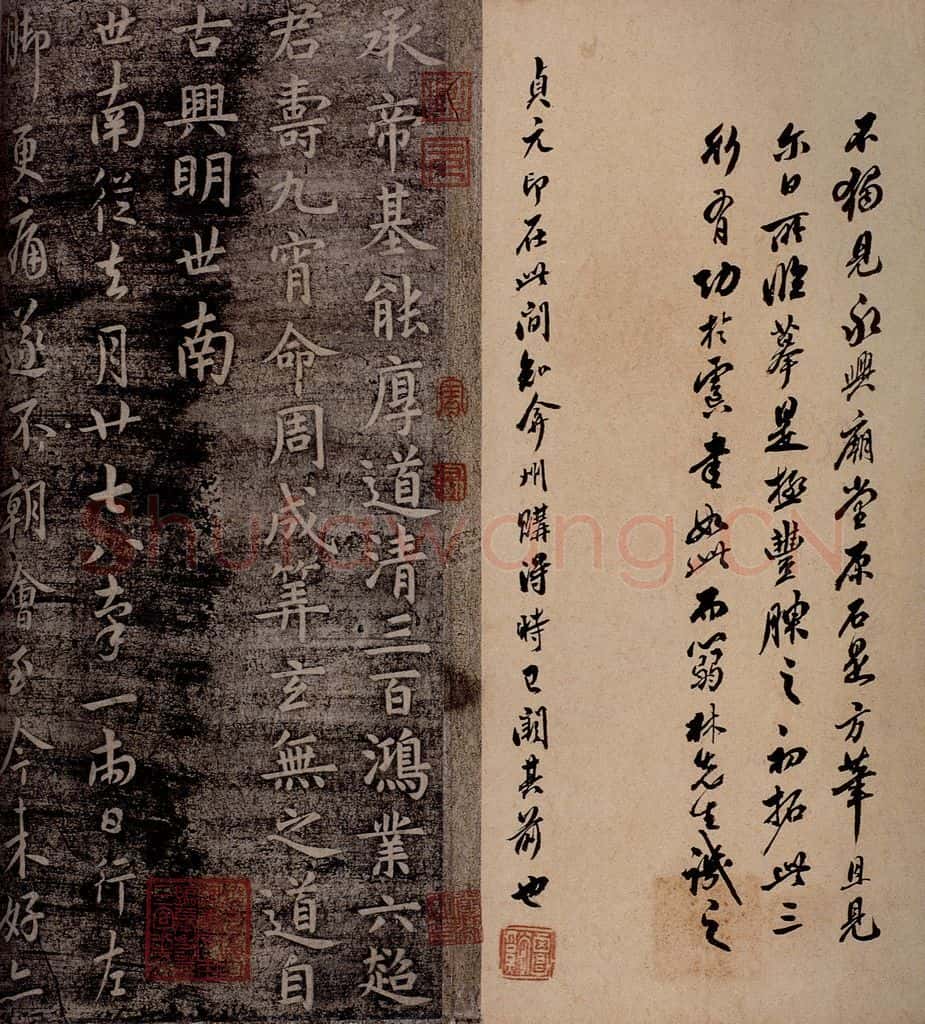 不獨見永興廟堂原石是方筆且見
尓日所臨摹是極豐腴之初拓此三
行有功於虞書如此 林先生識之
貞元印在此間知弇州購得時已闕其前也
承帝基能厚道清三百鴻業六超
君壽九宵命周成筭玄無之道自
古興明世南
世南從去月廿七八率一兩日行左
脚更痛遂不朝會至今未好亦
Shufawang.CN